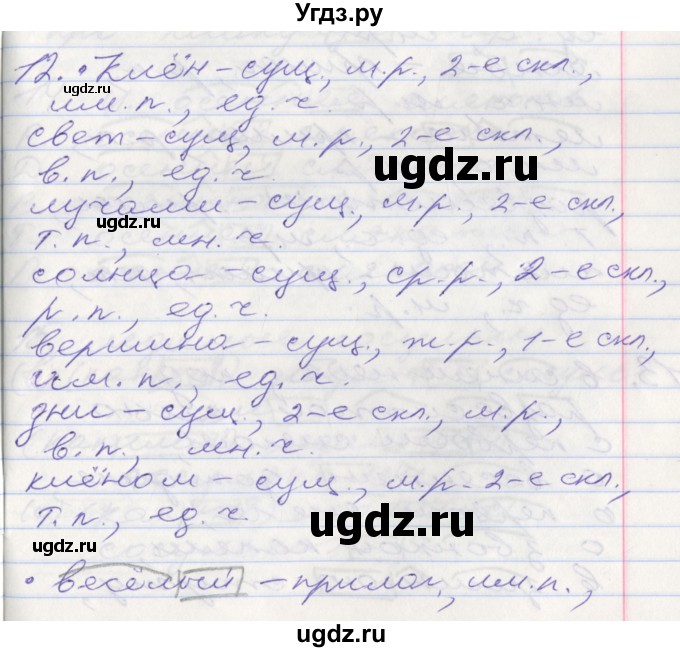 Угдз.ру
12. • Клён – сущ., м.р., 2-е скл.,
им.п., ед.ч.
свет – сущ., м.р., 2-е скл.,
в.п., ед.ч.
лучами – сущ., м.р., 2-е скл.,
т.п., мн.ч.
солнца – сущ., ср.р., 2-е скл.,
р.п., ед.ч.
вершина – сущ., ж.р., 1-е скл.,
им.п., ед.ч.
дни – сущ., 2-е скл., м.р.,
в.п., мн.ч.
клёном – сущ., м.р. 2-е скл.,
т.п., ед.ч.
• весёлый – прилаг., им.п.,
ugdz.ru
ugdz.ru
ugdz.ru
ugdz.ru
ugdz.ru
ugdz.ru
ugdz.ru